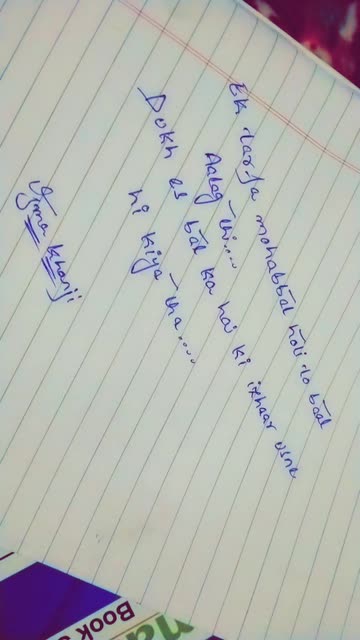 Ek tarfa mohabbat hoti to baat
Aalag thi....
Dukh es bat ka hai ki izhaar usne
hi kiya tha....
Book